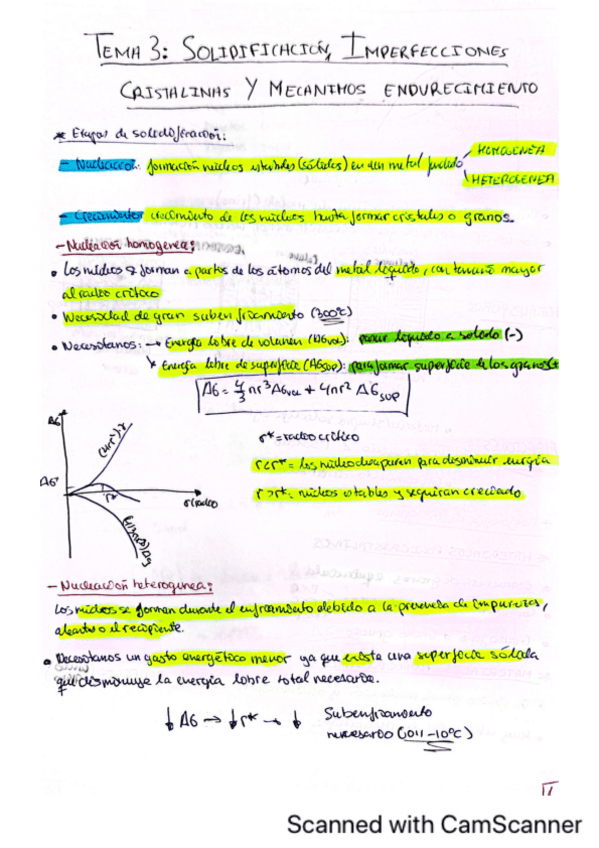 TEMA 3: SOLIDIFICACIÓN, IMPERFECCIONES
CRISTALINAS Y MECANIMOS ENDURECIMIENTO
* Etapas de solidificación:
- Nucleación: formación núcleos estables (sólidos) en un metal fundido
HOMOGENEA
HETEROGENEA
- Crecimiento: crecimiento de los núcleos hasta formar cristales o granos.
- Nucleación homogenea:
• Los núcleos se forman a partir de los átomos del metal líquido, con tamaño mayor
al radio crítico
• Necesidad de gran suben friamiento (300ºC)
• Necesitamos: → Energía libre de volumen (ΔGvol): pasar líquido a sólido (-)
↘ Energía libre de superficie (ΔGsup): para formar superficie de los granos (+
ΔG = 4/3 πr³ ΔGvol + 4πr² ΔGsup
ΔG
(4πr²)γ
ΔG*
r*
r (radio)
(4/3πr³)Δg
r* = radio crítico
r<r* = los núcleo desaparen para disminuir energía
r>r*: núcleos estables y seguiran creciendo
- Nucleación heterogenea:
Los núcleos se forman durante el enfriamiento debido a la presencia de impurezas,
aleante o el recipiente.
• Necesitamos un gasto energético menor ya que existe una superficie sólida
que disminuye la energía libre total necesaria.
↓ ΔG → ↓ r* → ↓ Subenfriamiento
necesario (0'1-10ºC)
Scanned with CamScanner